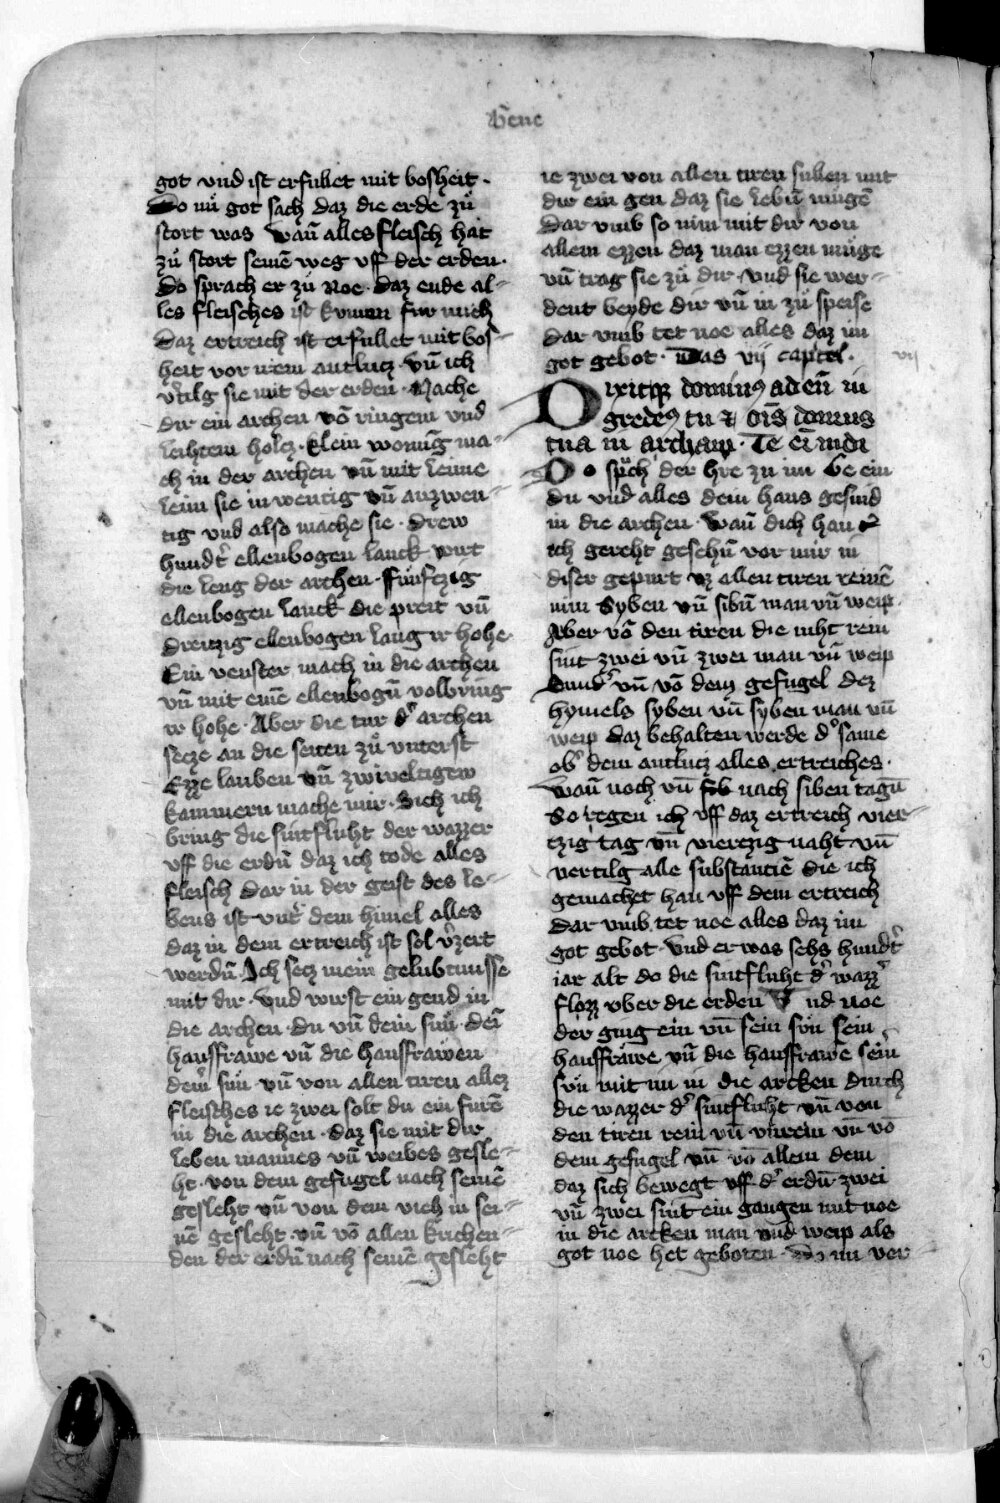 Gene
got vnd ist erfullet mit bosheit ·
Do nü got sach daz die erde zu̓
stort was wan̄ alles fleisch hat
zu̓ stort seinē weg vff der erden ·
Do sprach er zu̓ Noe · daz ende al-
les fleisches ist kumen fur mich
daz ertreich ist erfullet mit bos-
heit vor irem antlucz · vn̄ ich
v̓tilg sie mit der erden · Mache
dir ein archen vō ringem vnd
leihtem holcz · klein wonūg ma-
ch in der archen vn̄ mit leime
leim sie inwentig vn̄ auzwen-
tig vnd also mache sie · drew
hundt̓ ellenbogen lanck wirt
die leng der archen · ffunfczig
ellenbogen lanck die preit vn̄
dreiczig ellenbogen lang ir hohe ·
Ein venster mach in die archen
vn̄ mit eine ellenbogn̄ volbring
ir hohe · Aber die tur d̓ archen
secze an die seiten zu̓ vnterst
Ezze lauben vn̄ zwiveltigew
kammern mache mir · Sich ich
bring die sintfluht der wazzer
vff die erdn̄ daz ich tode alles
fleisch dar in der geist des le-
bens ist vnt̓ dem himel alles
daz in dem ertreich ist sol v̓zert
werdn̄ · Ich secz mein gelubtnusse
mit dir · Vnd wirst ein gend in
die archen · du vn̄ dein sün · dein̄
hausffrawe vn̄ die hausffrawen
dein̄ sün vn̄ von allen tiren allez
fleisches ie zwei solt du ein furē
in die archen · daz sie mit dir
leben mannes vn̄ weibes gesle-
ht · von dem gefugel nach seinē
gesleht vn̄ von dem vich in sei-
nē gesleht · vn̄ vō allen krichen-
den der erdn̄ nach seinē gesleht
ie zwei von allen tiren sullen mit
dir ein gen daz sie lebn̄ mügē
Dar vmb so nim mit dir von
allem ezzen daz man ezzen müge
vn̄ trag sie zu̓ dir · vnd sie wer-
dent beyde dir vn̄ in zu̓ speise
dar vmb tet noe alles daz im
got gebot · Das vij capitel · vij
Dixitqz dominus ad eū in
gredere tu et oīs domus
tua in archam · Te eī vidi
Do sprach der hre zu im Ge ein
du vnd alles dein haus gesind
in die archen · Wan̄ dich han
ich gereht gesehn̄ vor mir in
diser gepurt vz allen tiren reinē
nim Syben vn̄ sibn̄ man vn̄ weip ·
Aber vō den tiren die niht rein
sint zwei vn̄ zwei man vn̄ weip
Sund̓ vn̄ vō dem gefugel dez
hymels syben vn̄ syben man vn̄
weip daz behalten werde d̓ same
ob̓ dem antlucz alles ertreiches ·
Wan̄ noch vn̄ nach siben tagn̄
So regen ich vff daz ertreich vier-
czig tag vn̄ vierczig naht vn̄
vertilg alle substancē die ich
gemachet han vff dem ertreich
dar vmb tet noe alles daz im
got gebot · Vnd er was sehs hundt̓
iar alt do die sintfluht d̓ wazz̓
flozz vber die erden Vnd noe
der ging ein vn̄ sein sün sein
hausffrawe vn̄ die hausffrawē sein̄
sün mit im in die arcken durch
die wazzer d̓ sintfluht vn̄ von
den tiren rein vn̄ vnrein vn̄ vō
dem gefugel vn̄ vō allem dem
daz sich bewegt vff d̓ erdn̄ zwei
vn̄ zwei sint ein gangen mit noe
in die arcken man vnd weip als
got noe het geboten · Do nu ver